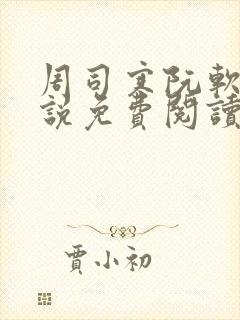 周司寒阮軟
說免費閱讀
賈小初